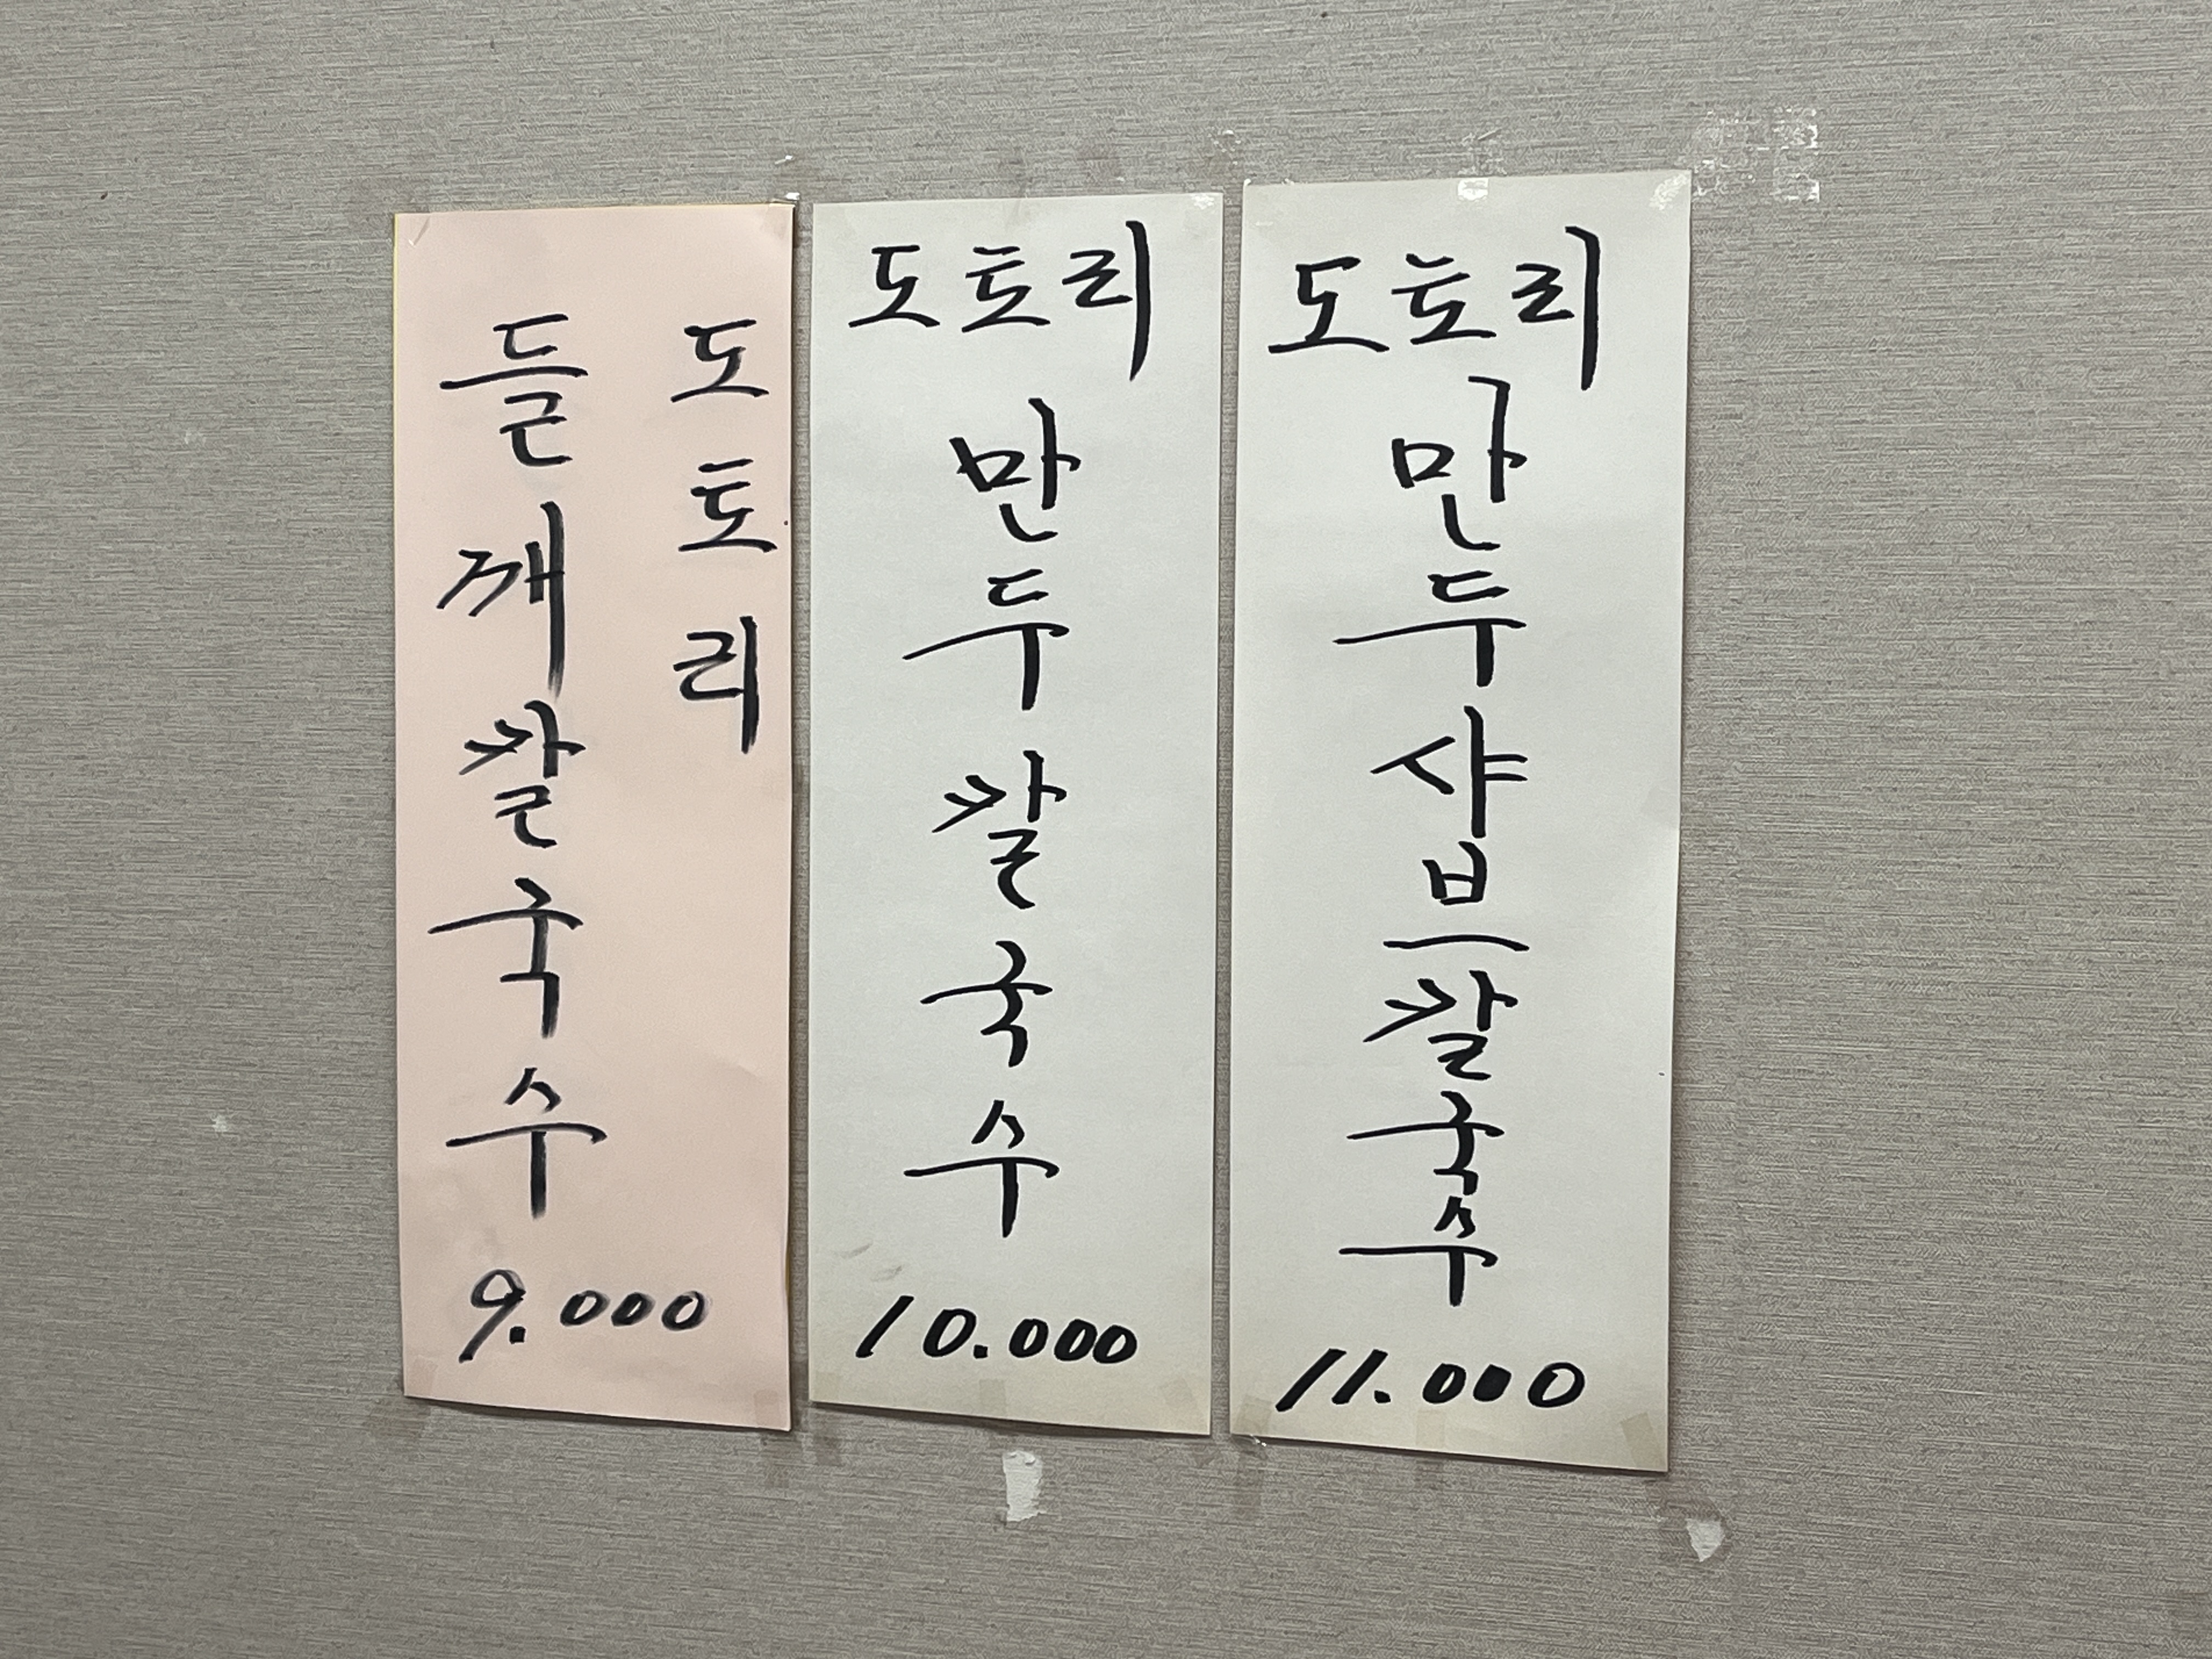 도토리
들깨칼국수
9.000
도토리
만두칼국수
10.000
도토리
만두샤브칼국수
11.000